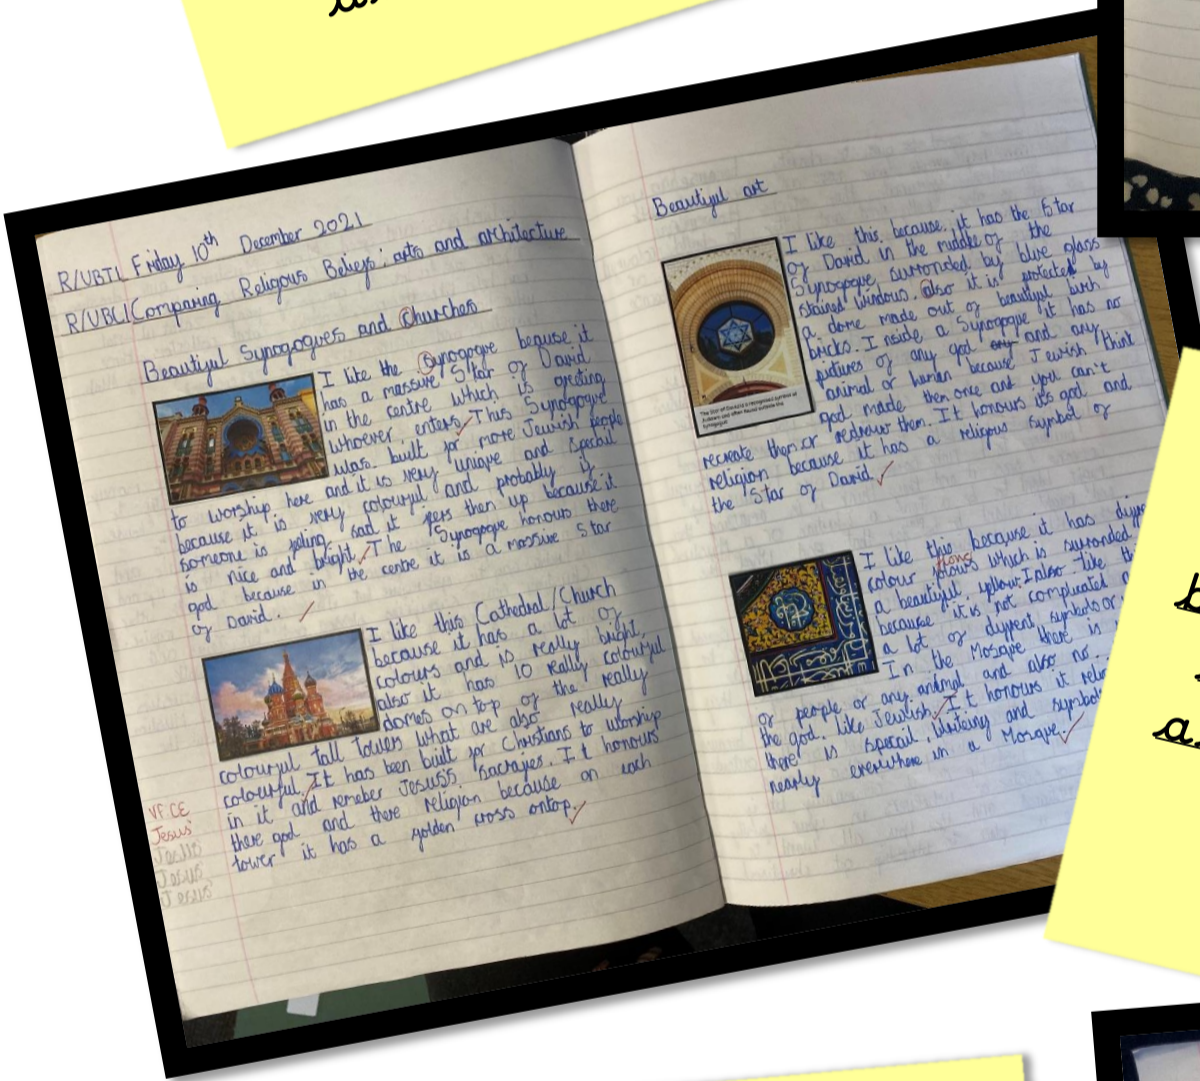 R/VBTL Friday 10th December 2021
R/VBL Comparing Religous Beliefs: arts and architecture
Beautiful Synogogues and Churches
I like the Synogogue begause it
has a massive Star of David
in the centre which is greeting
whoever enters. This Synogogue
was built for more Jewish people
to worship here and it is very unique and special
because it is very colourful and probably if
someone is feling sad it pers then up because it
is nice and bright. The Synogogue honours there
god because in the centre it is a massive Star
of David.
I like this Cathedral/Church
because it has a lot of
colours and is really bright,
also it has 10 really colourful
domes on top of the really
colourful tall towers what are also really
colourful. It has been built for Christians to worship
in it and remeber Jesus's sacrafes. It honours
there god and there religion because on each
tower it has a golden cross ontop.
VF CE
Jesus
Jesus
Jesus
Jesus
Beautiful art
I like this because it has the Star
of David in the middle of the
Synogogue surronded by blue glass
stained windows. also it is protected by
a dome made out of beautiful birch
bricks. Inside a Synogogue it has no
pictures of any god and any
animal or human because Jewish think
god made then once and you can't
recreate them or redrew them. It honours its god and
religion because it has a religous symbol of
the Star of David
The Star of David is a recognised symbol of
Judaism and often found outside the
Synagogue
I like this because it has diffre
colour flows which is surronded
a beautiful yellow. I also like th
because it is not complicated
a lot of diffrent symbols or
In the Mosque there is
of people or any animal and also no
the god like Jewish. It honours it relig
there is specail writing and symbols
nearly everwhere in a Mosque.
a